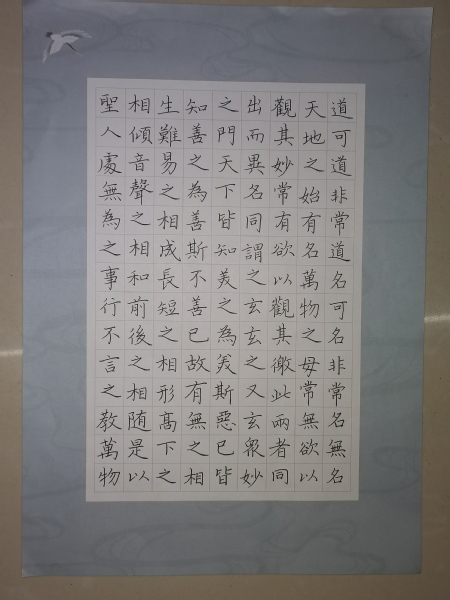 道可道非常道名可名非常名無名
天地之始有名萬物之母常無欲以
觀其妙常有欲以觀其徼此兩者同
出而異名同謂之玄玄之又玄衆妙
之門天下皆知美之為美斯惡已皆
知善之為善斯不善已故有無之相
生難易之相成長短之相形髙下之
相傾音聲之相和前後之相随是以
聖人處無為之事行不言之教萬物